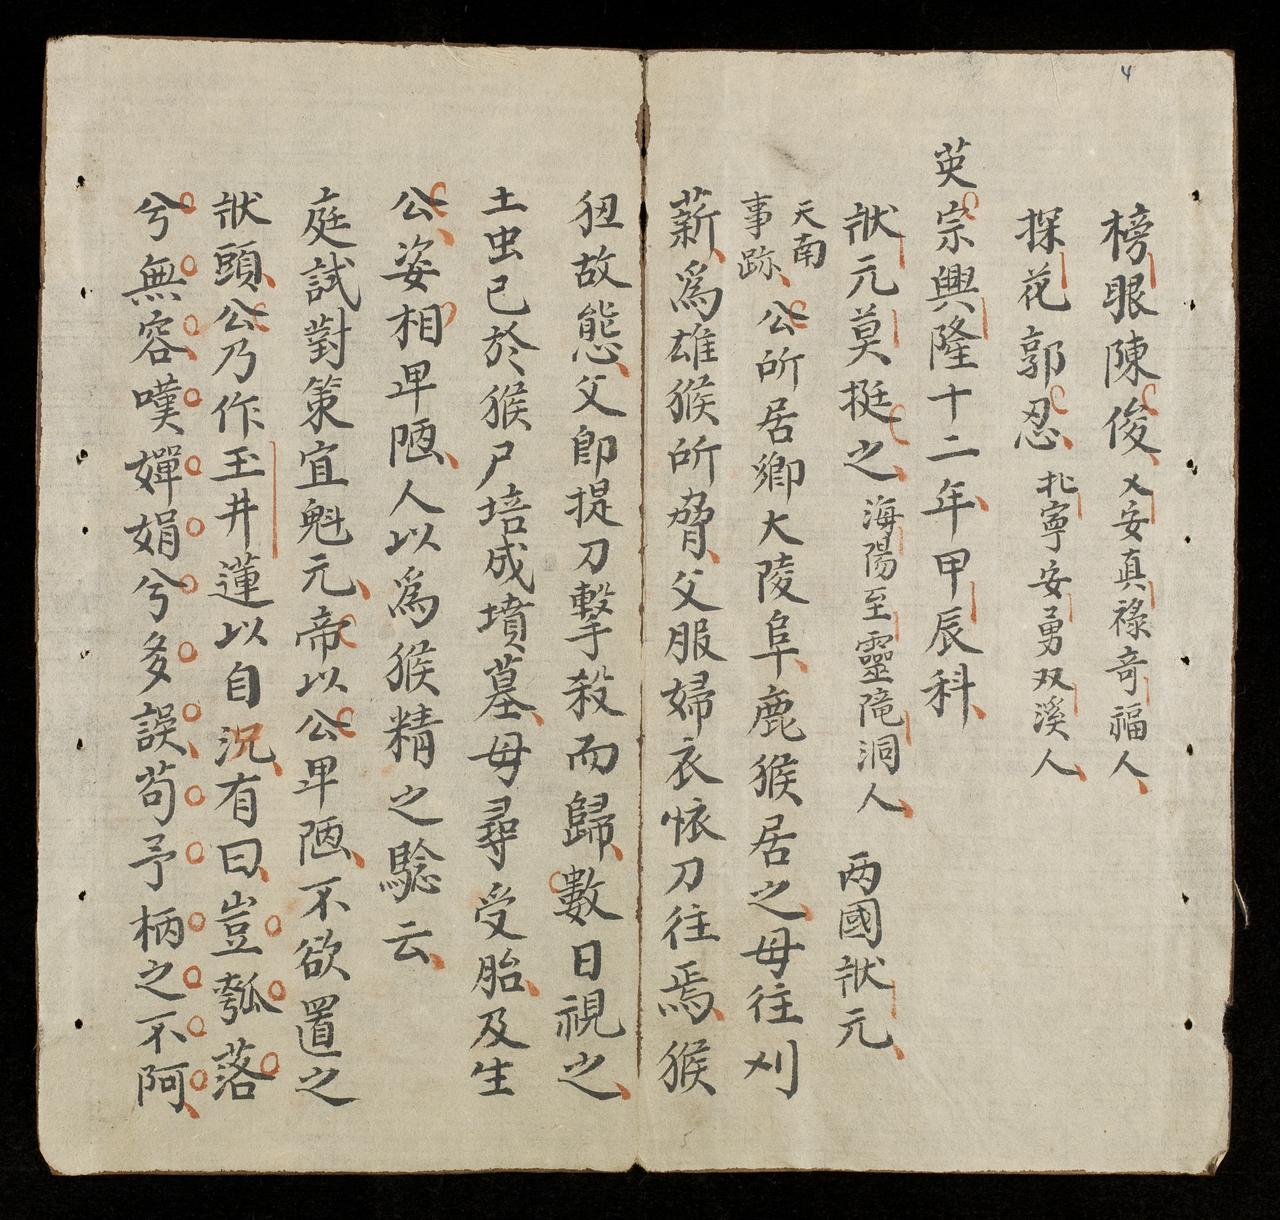 4
榜眼陳俊乂安真祿奇福人
探花郭忍北寧安勇双溪人
英宗興隆十二年甲辰科
狀元莫挺之海陽至靈隴洞人 两國狀元
天南
事跡公所居鄉大陵阜鹿猴居之毋往刈
薪爲雄猴所脅父服婦衣怀刀往焉猴
狃故態父卽提刀擊殺而歸數日視之
土虫已於猴尸培成墳墓毋尋受胎及生
公姿相卑陋人以爲猴精之驗云
庭試對策宜魁元帝以公卑陋不欲置之
狀頭公乃作玉井蓮以自況有曰豈瓠落
兮無容嘆嬋娟兮多誤苟予柄之不阿